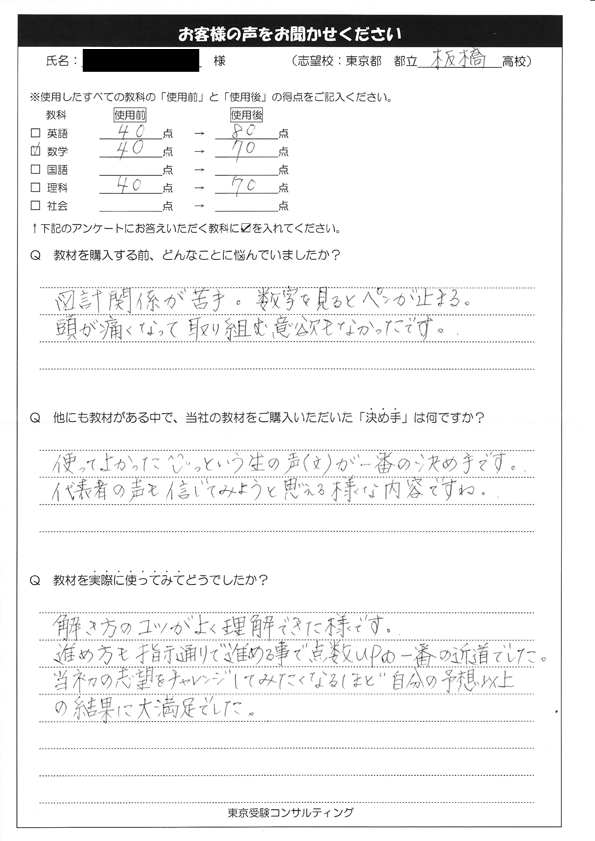 お客様の声をお聞かせください
氏名： 様 （志望校：東京都 都立 板橋 高校）
※使用したすべての教科の「使用前」と「使用後」の得点をご記入ください。
教科 使用前 使用後
□ 英語 40 点 → 80 点
☑ 数学 40 点 → 70 点
□ 国語 点 → 点
□ 理科 40 点 → 70 点
□ 社会 点 → 点
↑下記のアンケートにお答えいただく教科に☑を入れてください。
Q 教材を購入する前、どんなことに悩んでいましたか？
図計関係が苦手。数字を見るとペンが止まる。
頭が痛くなって取り組む意欲もなかったです。
Q 他にも教材がある中で、当社の教材をご購入いただいた「決め手」は何ですか？
使ってよかった という生の声(文)が一番の決め手です。
代表者の声も信じてみようと思える様な内容ですね。
Q 教材を実際に使ってみてどうでしたか？
解き方のコツがよく理解できた様です。
進め方も指示通りで進める事で点数UPの一番の近道でした。
当初の志望をチャレンジしてみたくなるほど自分の予想以上
の結果に大満足でした。
東京受験コンサルティング